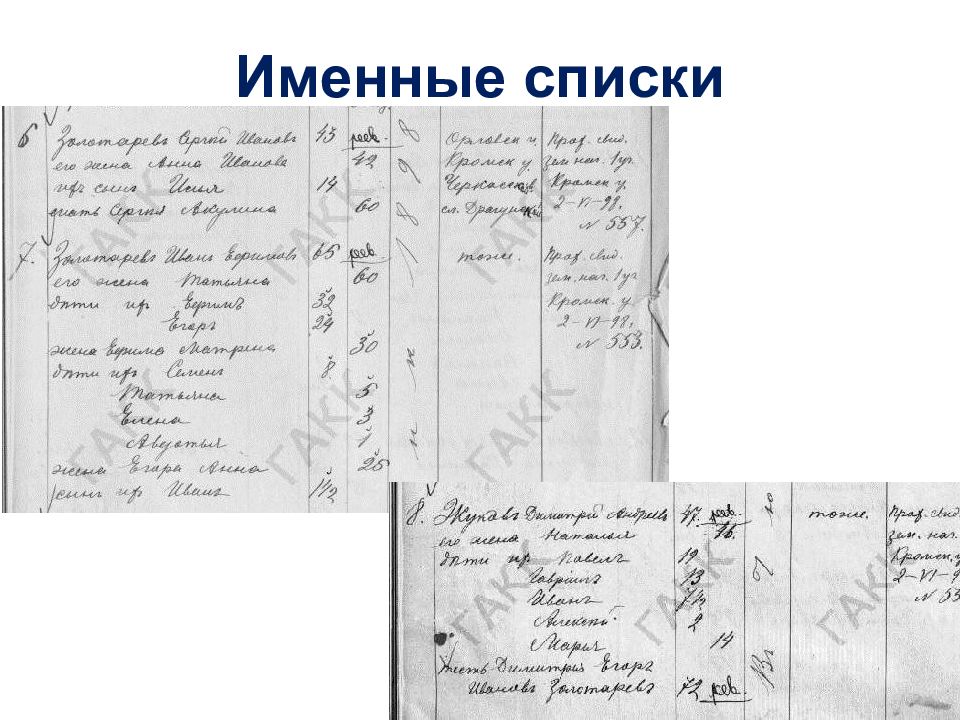 Именные списки
6 Золотаревъ Сергѣй Ивановъ 43 рев. Орловск. г. Проф. свид.
его жена Анна Иванова 42 Кромск. у. зем. нач. 1 уч.
ихъ сынъ Илья 14 Черкасск. Кромск. у.
мать Сергѣя Акулина 60 сл. Драгунской 2-VI-98.
№ 557.
7. Золотаревъ Иванъ Ефимовъ 65 рев. тоже. Проф. свид.
его жена Татьяна 60 зем. нач. 1 уч.
дѣти ихъ Ефимъ 32 Кромск. у.
Егоръ 24 2-VI-98.
жена Ефима Матрена 30 № 553.
дѣти ихъ Семенъ 8
Татьяна 5
Елена 3
Авдотья 1
жена Егора Анна 25
сынъ ихъ Иванъ 1/2
1898
8. Жуковъ Димитрій Андреевъ 47. рев. тоже. Проф. свид.
его жена Наталья 46. зем. нач.
дѣти ихъ Павелъ 19 Кромск. у.
Гавріилъ 13 2-VI-9
Иванъ № 55
Алексѣй 2
Марья 14
тесть Димитрія Егоръ
Ивановъ Золотаревъ 72 рев.
ГАКК
ГАКК
ГАКК
ГАКК
ГАКК
ГАКК
ГАКК
ГАКК
ГАКК